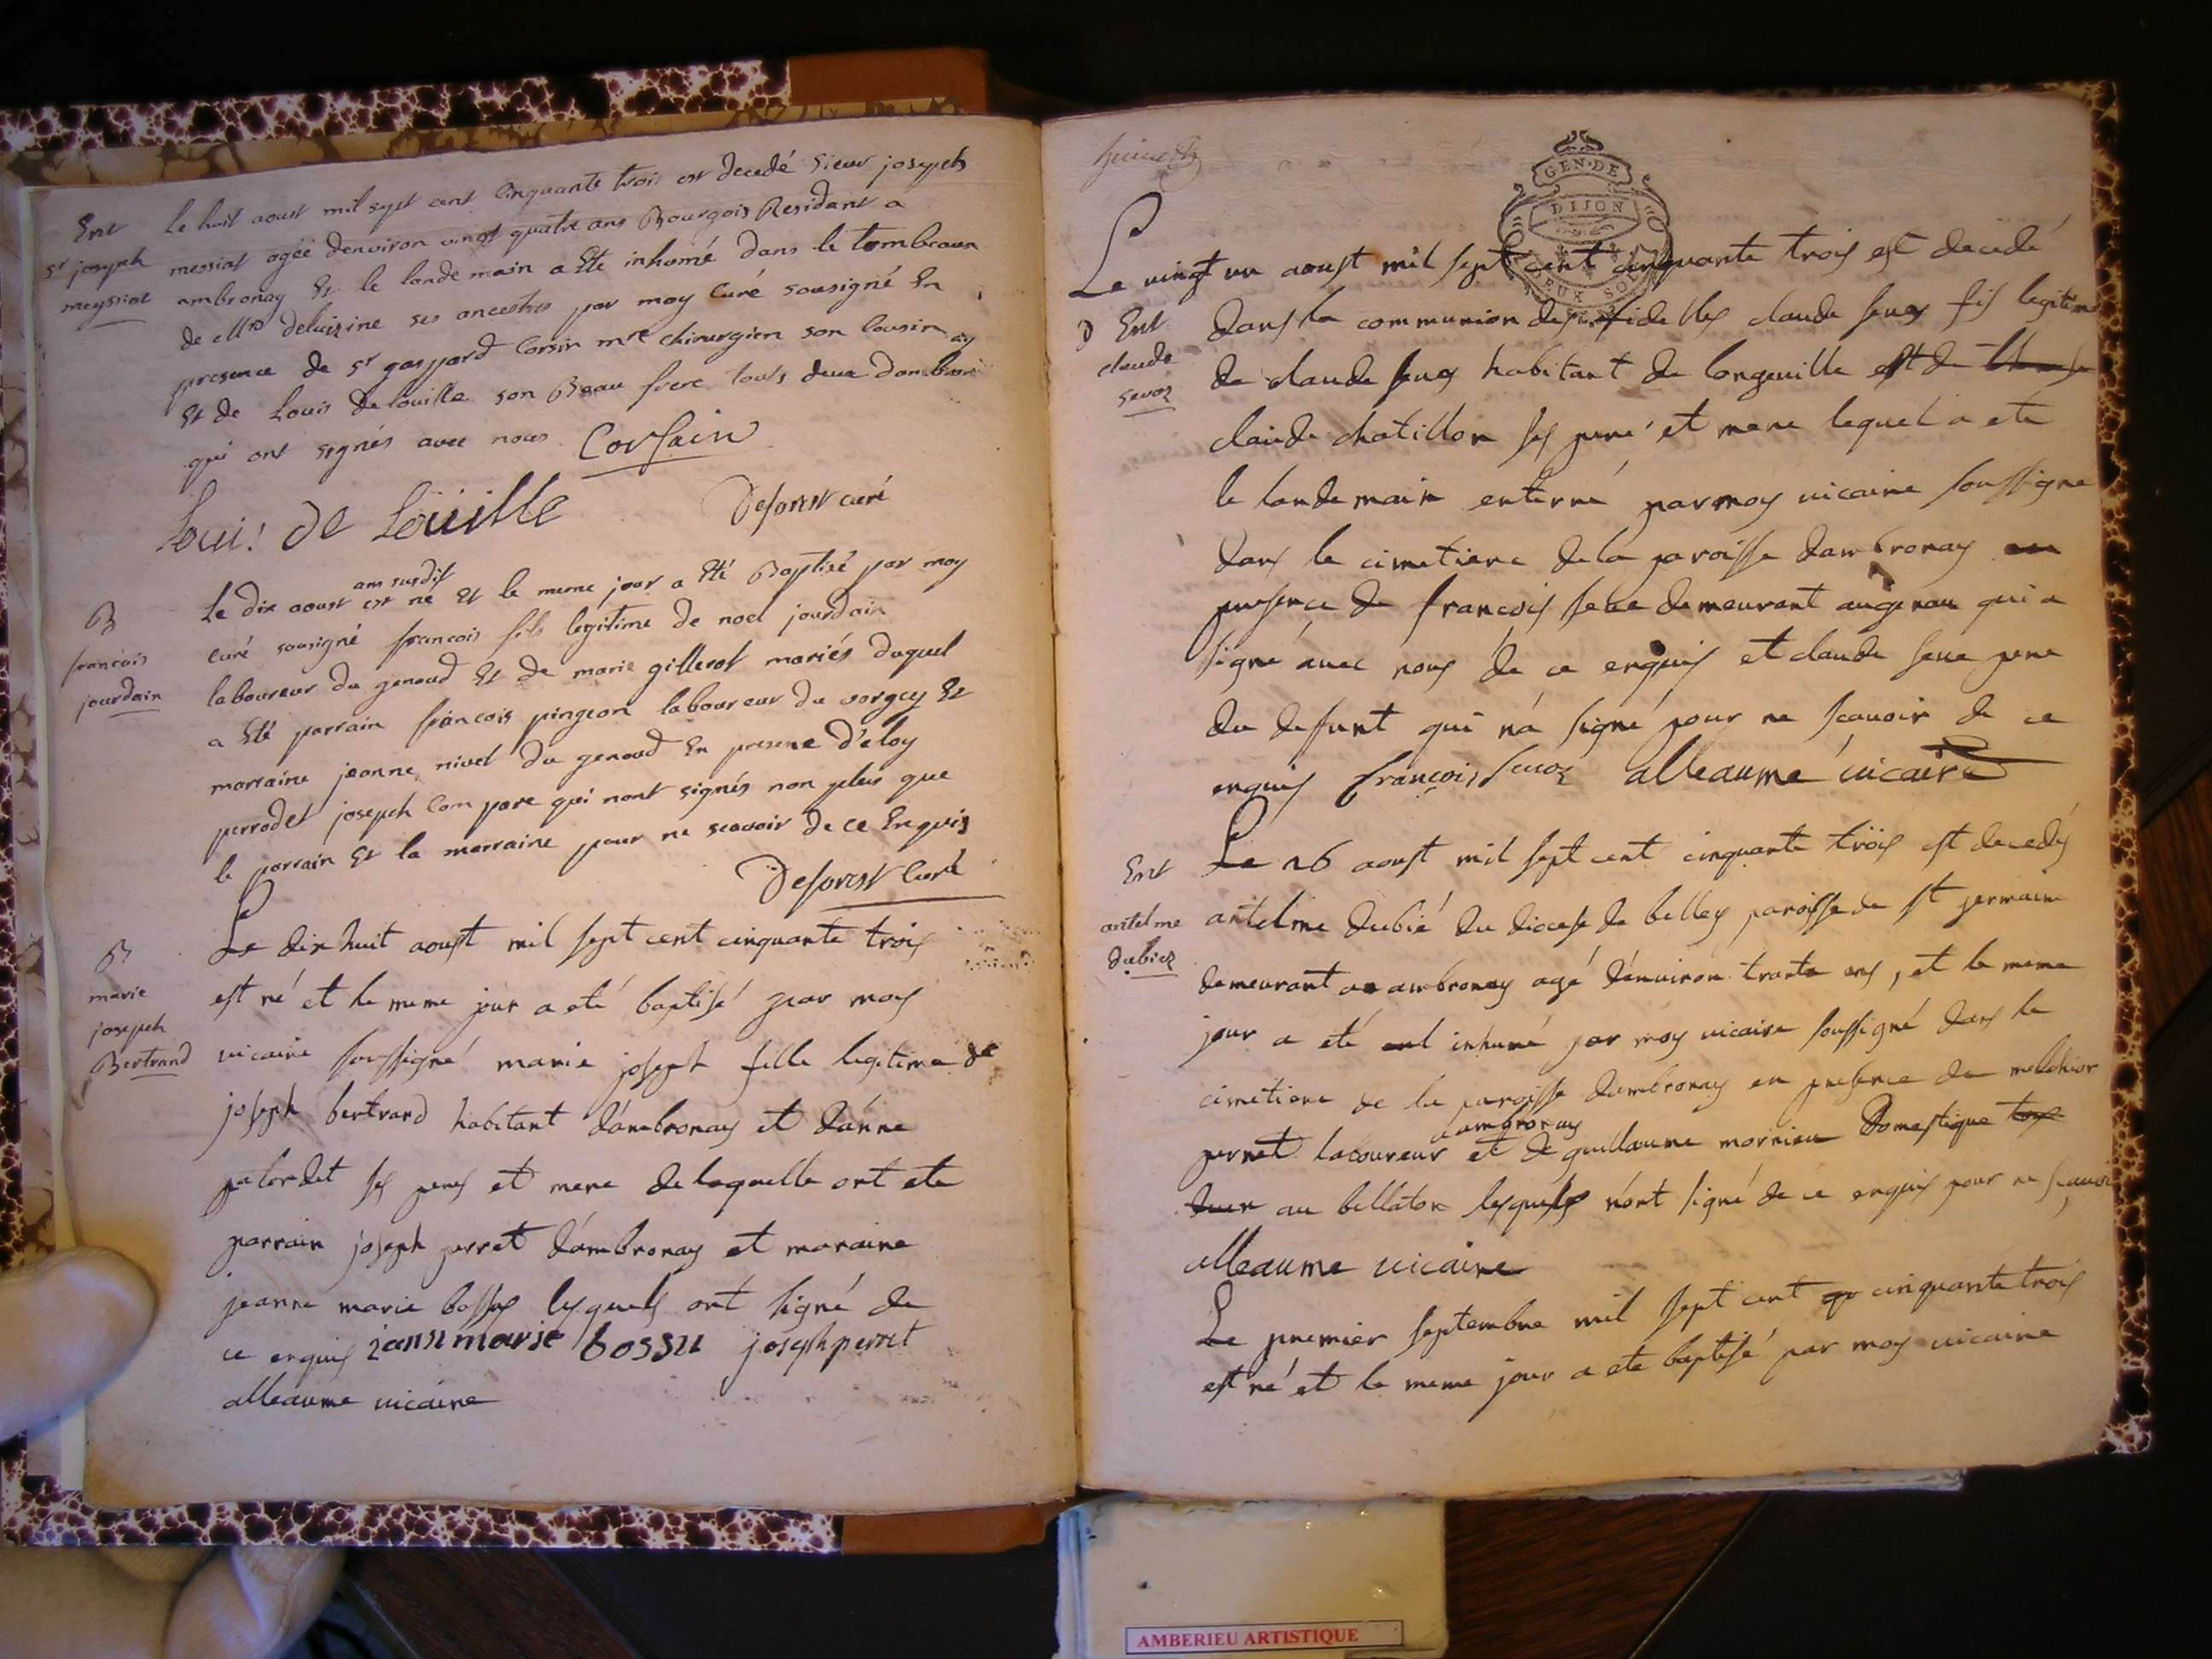 Ent
sr joseph
meyssiat
Le huit aoust mil sept cent Cinquante trois est decedé Sieur joseph
messiat agée denviron vingt quatre ans Bourgois Residant a
ambronay Et le landemain a Eté inhumé dans le tombeaux
de
presence de sr gaspard Corsin mre chirurgien son Cousin
Et de Louis de louille son Beau frere touts deux
qui ont signés avec nous Corsain
Loui! de Loüille
Deforest curé
B
francois
jourdain
an susdit
Le dix aoust est né Et le meme jour a Eté Baptisé par moy
Curé sousigné francois fils legitime de noel jourdain
laboureur du genoud Et de marie gillerot mariés duquel
a Eté parrain francois pingeon laboureur du vorgey Et
marraine jeanne nivel du genoud En presene D'eloy
perrodet joseph Compare qui nont signés non plus que
le parrain Et la marraine pour ne scavoir de ce Enquis
Deforest Curé
B
marie
joseph
Bertrand
Le dix huit aoust mil sept cent cinquante trois
est né et le meme jour a eté baptisé par moy
vicaire soussigné marie joseph fille legitime de
joseph bertrand habitant d'ambronay et d'anne
palordet ses peres et mere de laquelle ont ete
parrain joseph perret d'ambronay et maraine
jeanne marie bossuy lesquels ont signé de
ce enquis jann marie bossu joseph perret
alleaume vicaire
GEN·DE
DIJON
DEUX SOLS
Le vingt un aoust mil sept cent cinquante trois est decedé
D Ent
claude
sevoz
dans la communion des fidelles claude sevoz fis legitime
de claude sevoz habitant de longeville et de
claude chatillon ses pere et mere lequel a ete
le landemain enterré par moy vicaire soussigne
dans le cimetiere de la paroisse dambronay en
presence de francois seve demeurant au genou qui a
signé avec nous de ce enquis et claude seve pere
du defunt qui n'a signé pour ne scavoir de ce
enquis françois sevoz alleaume vicaire
Ent
antelme
dubiez
Le 26 aoust mil sept cent cinquante trois est decedés
antelme dubié du diocese de belley paroisse de st germain
demeurant a ambronay agé d'environ trante ans, et le meme
jour a eté inhumé par moy vicaire soussigné dans le
cimetiere de la paroisse dambronay en presence de melchior
dambronay
perret laboureur et de guillaume mornieu domestique
au bellaton lesquels n'ont signé de ce enquis pour ne scavoir
alleaume vicaire
Le premier septembre mil sept cent cinquante trois
est né et le meme jour a ete baptisé par moy vicaire
AMBERIEU ARTISTIQUE